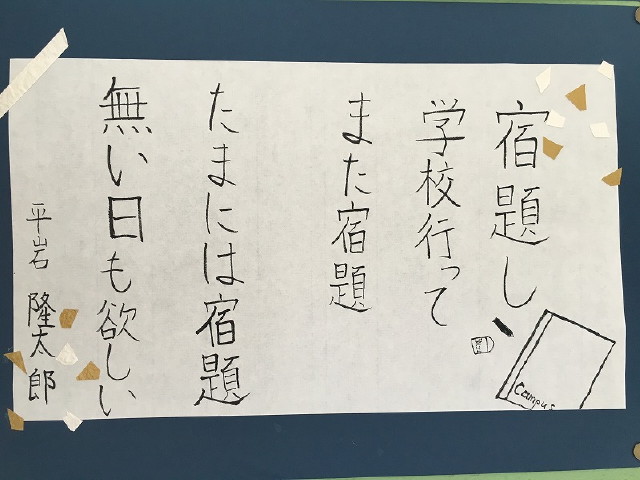 宿題し
学校行って
また宿題
たまには宿題
無い日も欲しい
平岩 隆太郎
Campus